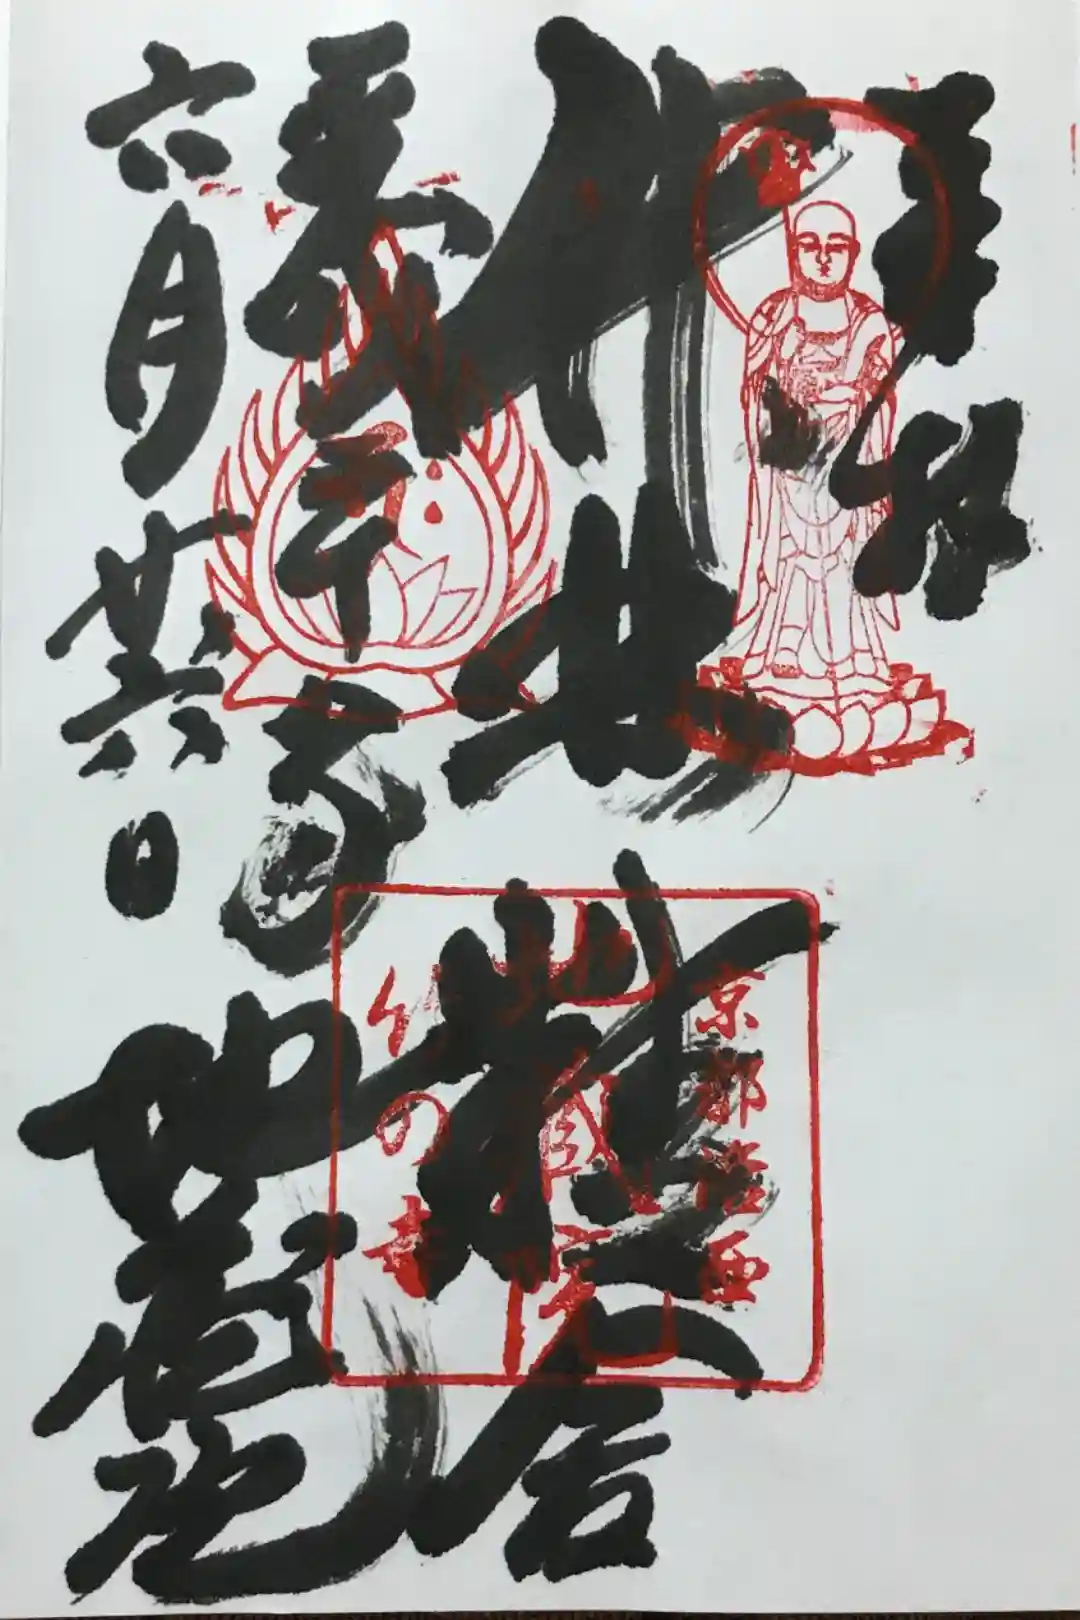 奉拝
竹林精舎
平成三十年
六月廿六日
地蔵院
京都洛西
地蔵院
竹の寺